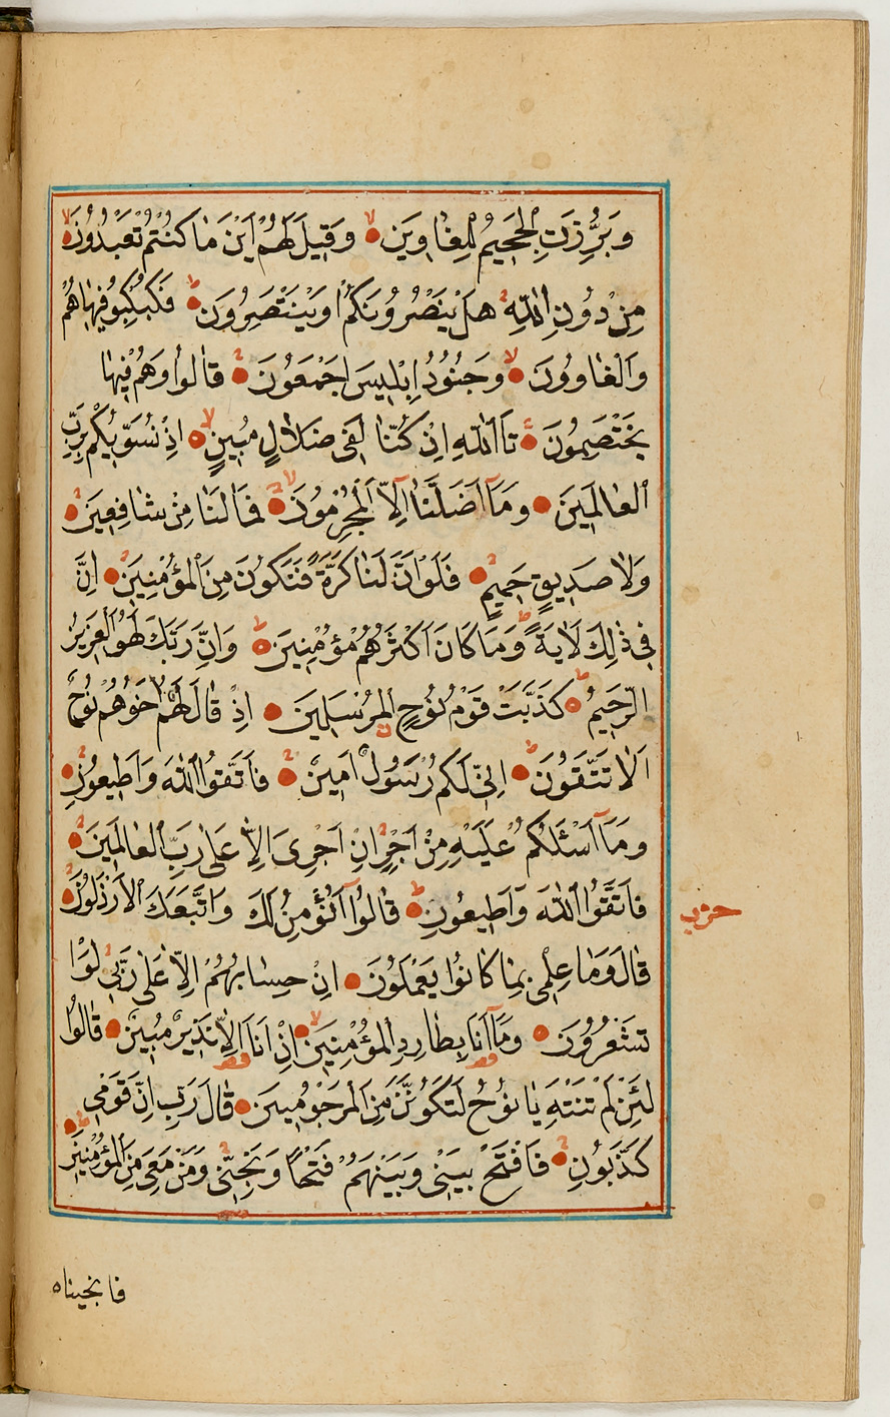 وَبُرِّزَتِ الْجَحِيمُ لِلْغَاوِينَ وَقِيلَ لَهُمْ اَيْنَ مَا كُنْتُمْ تَعْبُدُونَ
مِنْ دُونِ اللّٰهِ هَلْ يَنْصُرُونَكُمْ اَوْ يَنْتَصِرُونَ فَكُبْكِبُوا فِيهَا هُمْ
وَالْغَاوُونَ وَجُنُودُ اِبْلِيسَ اَجْمَعُونَ قَالُوا وَهُمْ فِيهَا
يَخْتَصِمُونَ تَاللّٰهِ اِنْ كُنَّا لَفِى ضَلَالٍ مُبِينٍ اِذْ نُسَوِّيكُمْ بِرَبِّ
الْعَالَمِينَ وَمَا اَضَلَّنَا اِلَّا الْمُجْرِمُونَ فَمَا لَنَا مِنْ شَافِعِينَ
وَلَا صَدِيقٍ حَمِيمٍ فَلَوْ اَنَّ لَنَا كَرَّةً فَنَكُونَ مِنَ الْمُؤْمِنِينَ اِنَّ
فِى ذٰلِكَ لَاٰيَةً وَمَا كَانَ اَكْثَرُهُمْ مُؤْمِنِينَ وَاِنَّ رَبَّكَ لَهُوَ الْعَزِيزُ
الرَّحِيمُ كَذَّبَتْ قَوْمُ نُوحٍ الْمُرْسَلِينَ اِذْ قَالَ لَهُمْ اَخُوهُمْ نُوحٌ
اَلَا تَتَّقُونَ اِنِّى لَكُمْ رَسُولٌ اَمِينٌ فَاتَّقُوا اللّٰهَ وَاَطِيعُونِ
وَمَا اَسْئَلُكُمْ عَلَيْهِ مِنْ اَجْرٍ اِنْ اَجْرِىَ اِلَّا عَلٰى رَبِّ الْعَالَمِينَ
فَاتَّقُوا اللّٰهَ وَاَطِيعُونِ قَالُوا اَنُؤْمِنُ لَكَ وَاتَّبَعَكَ الْاَرْذَلُونَ
حزب
قَالَ وَمَا عِلْمِى بِمَا كَانُوا يَعْمَلُونَ اِنْ حِسَابُهُمْ اِلَّا عَلٰى رَبِّى لَوْ
تَشْعُرُونَ وَمَا اَنَا بِطَارِدِ الْمُؤْمِنِينَ اِنْ اَنَا اِلَّا نَذِيرٌ مُبِينٌ قَالُوا
لَئِنْ لَمْ تَنْتَهِ يَا نُوحُ لَتَكُونَنَّ مِنَ الْمَرْجُومِينَ قَالَ رَبِّ اِنَّ قَوْمِى
كَذَّبُونِ فَافْتَحْ بَيْنِى وَبَيْنَهُمْ فَتْحًا وَنَجِّنِى وَمَنْ مَعِىَ مِنَ الْمُؤْمِنِينَ
فانجيناه